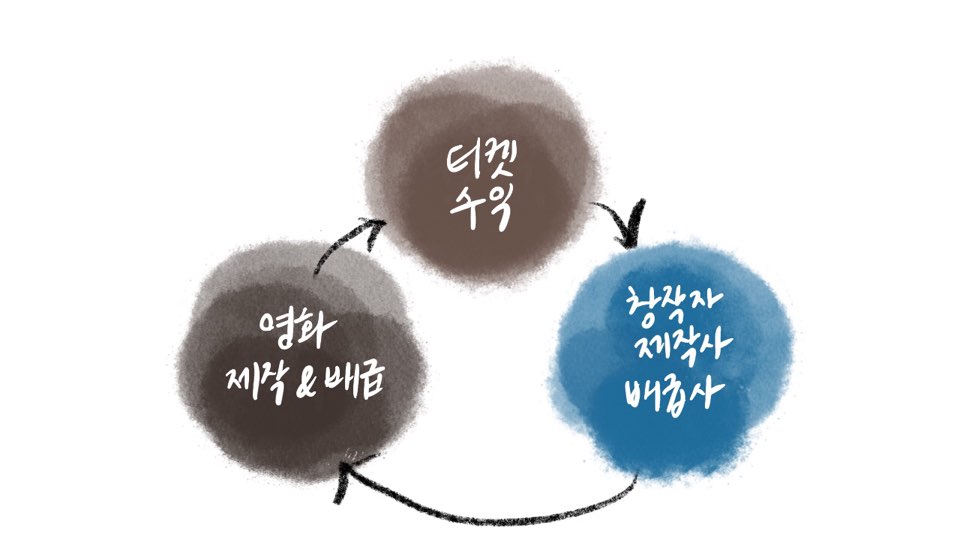 티켓
수익
창작자
제작사
배급사
영화
제작 & 배급